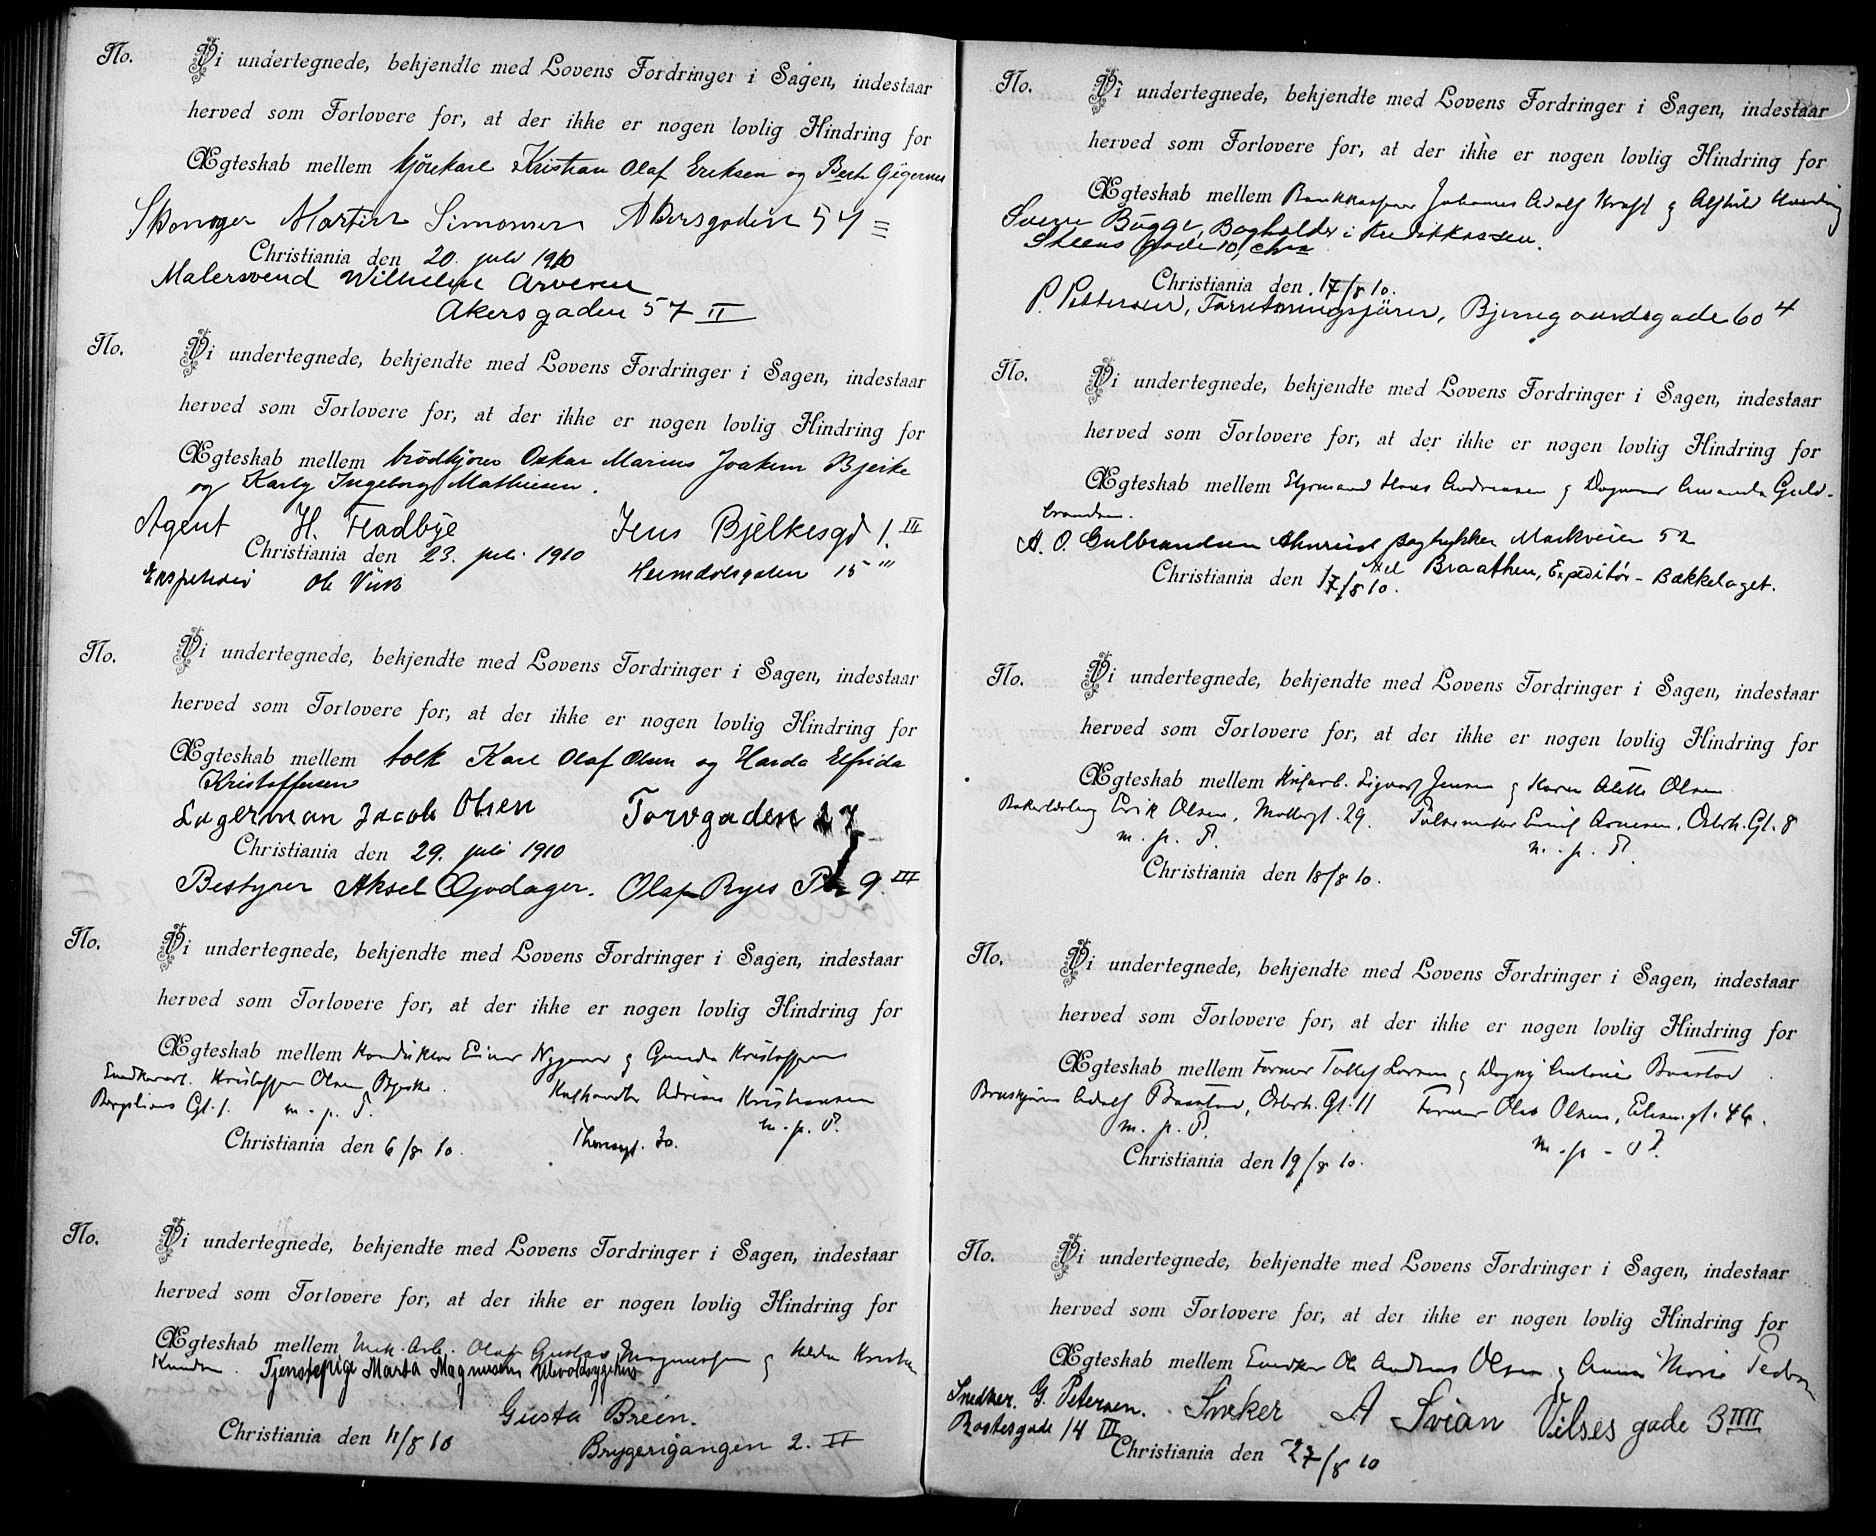 No. Vi undertegnede, bekjendte med Lovens Fordringer i Sagen, indestaar
herved som Forlovere for, at der ikke er nogen lovlig Hindring for
Ægteskab mellem kjörekarl Kristian Olaf Eriksen og
Martin Simonsen Akersgaden 57
Christiania den 20. juli 1910
Malersvend Wilhelm Arvesen
Akersgaden 57 II
No. Vi undertegnede, bekjendte med Lovens Fordringer i Sagen, indestaar
herved som Forlovere for, at der ikke er nogen lovlig Hindring for
Ægteskab mellem brödkjörer Oskar Marius Joakim Bjerke
og Karly Ingeborg Mathiesen.
Agent H. Fladbye Jens Bjelkesgd 1. III
Christiania den 23. juli 1910
Ole Heimdalsgaden 15 III
No. Vi undertegnede, bekjendte med Lovens Fordringer i Sagen, indestaar
herved som Forlovere for, at der ikke er nogen lovlig Hindring for
Ægteskab mellem tolk Karl Olaf Olsen og Harda Elfrida
Kristoffersen
Lagerman Jacob Olsen Torvgaden 27
Christiania den 29. juli 1910
Bestyrer Aksel Opdager. Olaf Ryes Pl 9 III
No. Vi undertegnede, bekjendte med Lovens Fordringer i Sagen, indestaar
herved som Forlovere for, at der ikke er nogen lovlig Hindring for
Ægteskab mellem Konduktør Einar og Gunda Kristoffersen
Kristoffer Olsen Bjerke. Adrian Kristiansen
Gt. 1. m. p. P. m. p. P.
Christiania den 6/8 10. 30.
No. Vi undertegnede, bekjendte med Lovens Fordringer i Sagen, indestaar
herved som Forlovere for, at der ikke er nogen lovlig Hindring for
Ægteskab mellem Mek. Arb. Olaf Gustav Magnussen og Hilda
Knudsen. Tjenstepige Marta Magnusens Ulevoldsygehus
Gusta Breien.
Christiania den 11/8 10 Bryggerigangen 2. II
No. Vi undertegnede, bekjendte med Lovens Fordringer i Sagen, indestaar
herved som Forlovere for, at der ikke er nogen lovlig Hindring for
Ægteskab mellem Bankkasserer Johannes Adolf Kraft og Alfhild
Sverre Bugge, Bogholder i Kreditkassen.
Steens gade 10, Chra
Christiania den 17/8 10.
P. Pettersen, Forretningsfører, Bjerregaardsgade 60 4
No. Vi undertegnede, bekjendte med Lovens Fordringer i Sagen, indestaar
herved som Forlovere for, at der ikke er nogen lovlig Hindring for
Ægteskab mellem Styrmand Hans Andreasen og Dagmar Amanda Guld-
brandsen.
A. O. Gulbrandsen Markveien 52
Christiania den 17/8 10. Braathen, Expeditør - Bækkelaget.
No. Vi undertegnede, bekjendte med Lovens Fordringer i Sagen, indestaar
herved som Forlovere for, at der ikke er nogen lovlig Hindring for
Ægteskab mellem Sigvart Jensen og Karen Alette Olsen
Bakerlærling Erik Olsen, Mollergt. 29. Pølsemaker Emil Arnesen, Osterh. Gt. 8
m. p. P. m. p. P.
Christiania den 18/8 10.
No. Vi undertegnede, bekjendte med Lovens Fordringer i Sagen, indestaar
herved som Forlovere for, at der ikke er nogen lovlig Hindring for
Ægteskab mellem Former Tollef Larsen og Dagny Antonie Baastad
Adolf Baastad, Osterh. Gt. 11 Former Olaf Olsen, gt. 46.
m. p. P. m. p. P.
Christiania den 19/8 10.
No. Vi undertegnede, bekjendte med Lovens Fordringer i Sagen, indestaar
herved som Forlovere for, at der ikke er nogen lovlig Hindring for
Ægteskab mellem Snedker Ole Andreas Olsen og Anna Marie Pedersen
Snedker. G. Petersen. Snker A Svian Vilses gade 3 IIII
Rostedsgade 14 III
Christiania den 27/8 10